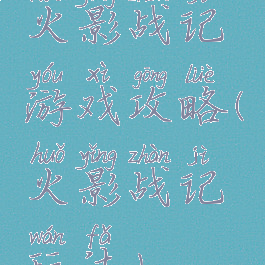 火影战记
yóu xì gōng lüè
游戏攻略(
huǒ yǐng zhàn jì
火影战记
wán fǎ